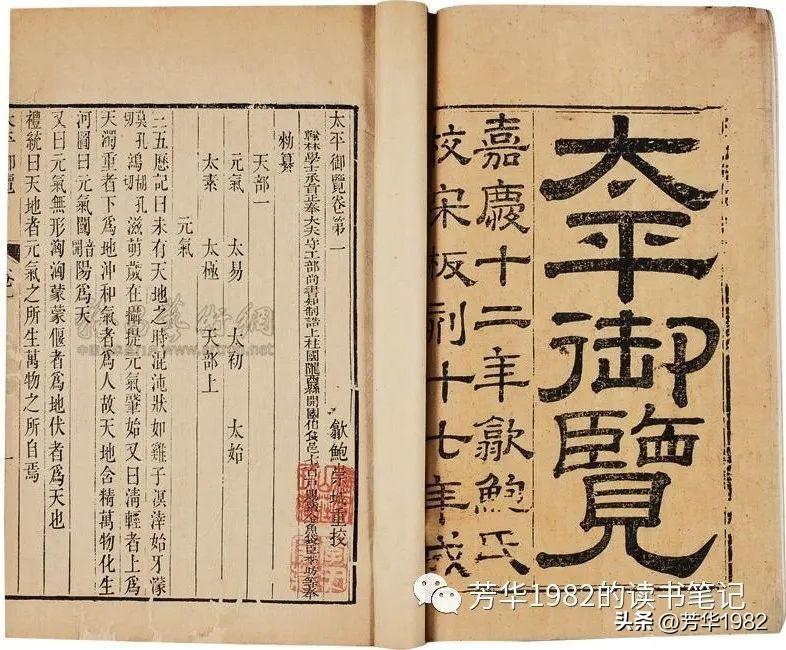 太平御覽
嘉慶十二年歙鮑氏
校宋板刻十七年成
太平御覽卷第一
歙鮑崇城重挍
翰林學士承旨正奉大夫守工部尚書知制誥上柱國隴西縣開國伯食邑七百戶賜紫金魚袋臣李昉等奉
勑纂
天部一
元氣 太易 太初 太始
太素 太極 天部上
元氣
三五歷記曰未有天地之時混沌狀如雞子溟涬始牙濛
鴻滋萌歲在攝提元氣肇始又曰清輕者上爲
天濁重者下爲地沖和氣者爲人故天地含精萬物化生
河圖曰元氣闓陽爲天
又曰元氣無形洶洶蒙蒙偃者爲地伏者爲天也
禮統曰天地者元氣之所生萬物之所自焉
太平御覽
卷一
一
芳华1982的读书笔记
头条 @芳华1982